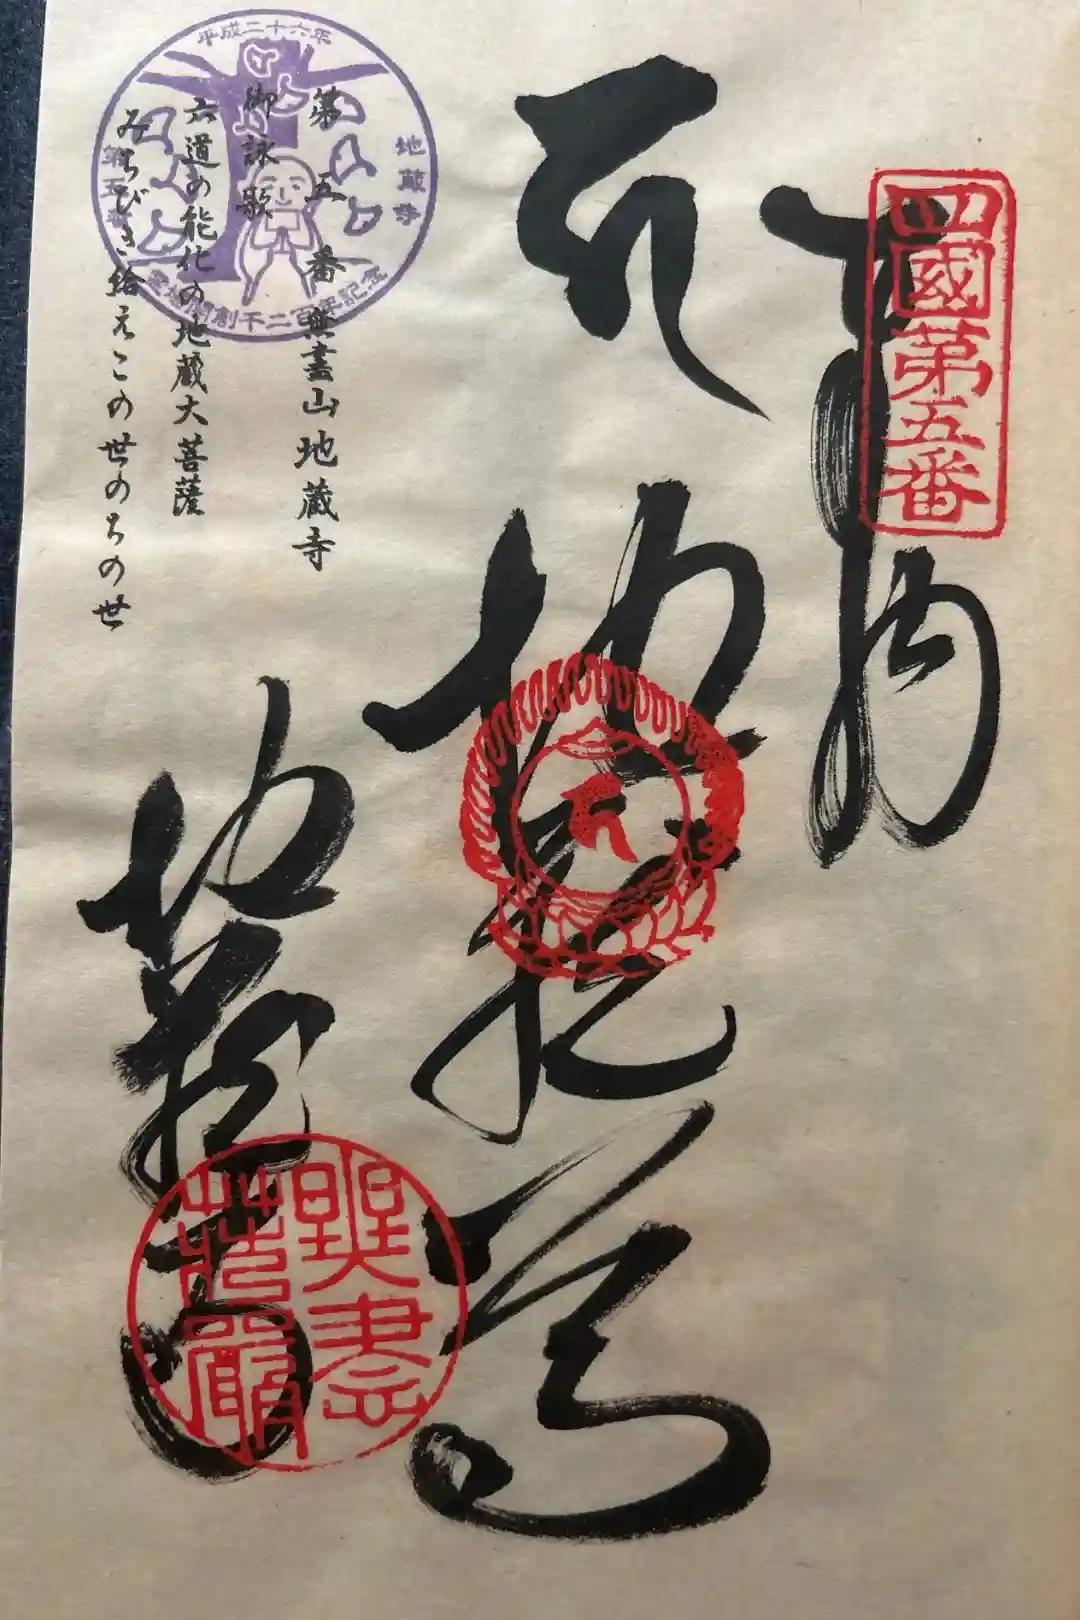 四國第五番
奉納
地蔵尊
地蔵寺
無盡荘嚴
第五番 無盡山地蔵寺
御詠歌
六道の能化の地蔵大菩薩
みちびき給えこの世のちの世
平成二十六年
地蔵寺
第五番
霊場開創千二百年記念